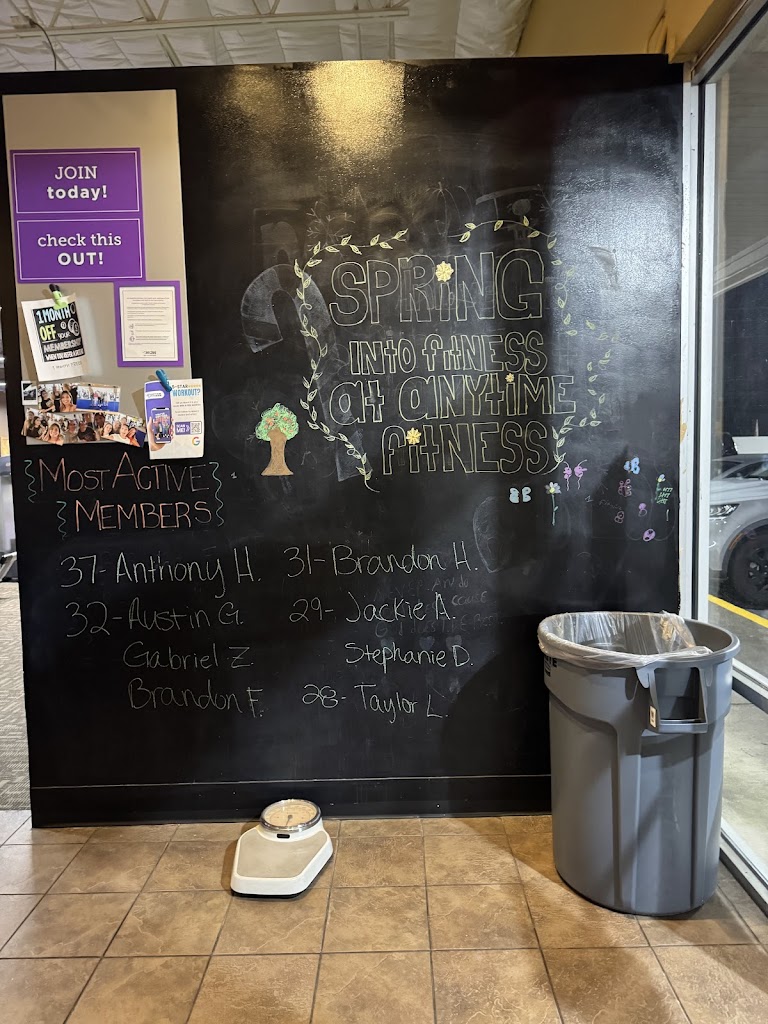 JOIN
today!
check this
OUT!
1 MONTH
OFF
YOUR
MEMBERSHIP
WORKOUT?
SPRING
INTO FITNESS
AT ANYTIME
FITNESS
MOST ACTIVE
MEMBERS
37- Anthony H.
32- Austin G.
Gabriel Z.
Brandon F.
31- Brandon H.
29- Jackie A.
Stephanie D.
28- Taylor L.